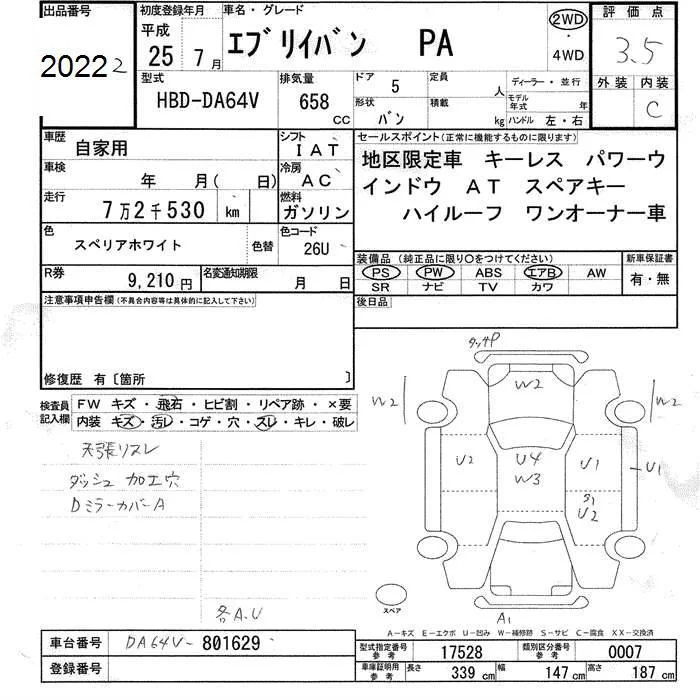 出品番号
20222
初度登録年月
平成
25 7月
車名・グレード
エブリイバン PA
2WD
・
4WD
評価点
3.5
外装 内装
C
型式
HBD-DA64V
排気量
658
cc
ドア 5
形状
バン
定員 人
積載 kg
ディーラー・並行
モデル年式 年
ハンドル 左・右
車歴
自家用
シフト
IAT
車検
年 月( 日)
冷房
AC
走行
7万2千530 km
燃料
ガソリン
色
スペリアホワイト
色替
色コード
26U
R券
9,210円
名変通知期限
月 日
セールスポイント(正常に機能するものに限ります)
地区限定車 キーレス パワーウ
インドウ AT スペアキー
ハイルーフ ワンオーナー車
装備品(純正品に限り○をつけてください)
PS PW ABS エアB AW
SR ナビ TV カワ
新車保証書
有・無
後日品
注意事項申告欄(不具合内容等は具体的に記入して下さい)
修復歴 有〔箇所 〕
検査員
記入欄
FW キズ・飛石・ヒビ割・リペア跡・×要
内装 キズ・汚レ・コゲ・穴・スレ・キレ・破レ
天張リスレ
ダッシュ 加工穴
DミラーカバーA
各A.U
タッチP
W2
W2
W2
U2
U4
W3
U1
U1
S1
U2
A1
スペア
A－キズ E－エクボ U－凹み W－補修跡 S－サビ C－腐食 XX－交換済
車台番号 DA64V-801629
登録番号
型式指定番号
参考
17528
類別区分番号
参考
0007
車庫証明用
参考
長さ 339 cm 幅 147 cm 高さ 187 cm